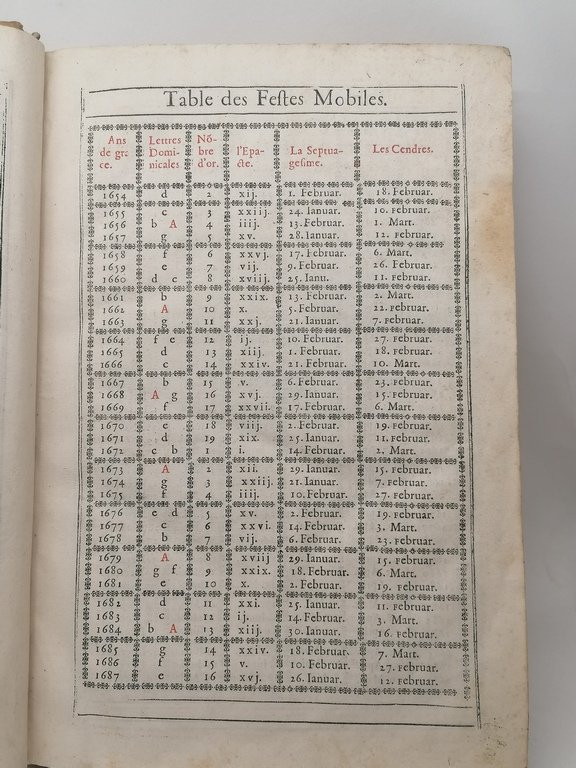 Table des Feſtes Mobiles.
Ans de gra ce. Lettres Domi- nicales Nõ- bre d'or. l'Epa- cte. La Septua- geſime. Les Cendres.
1654 d 2 xij. 1. Februar. 18. Februar.
1655 c 3 xxiij. 24. Ianuar. 10. Februar.
1656 b A 4 iiij. 13. Februar. 1. Mart.
1657 g 5 xv. 28. Ianuar. 12. Februar.
1658 f 6 xxvj. 17. Februar. 6. Mart.
1659 e 7 vij. 9. Februar. 26. Februar.
1660 d c 8 xviij. 25. Ianu. 11. Februar.
1661 b 9 xxix. 13. Februar. 2. Mart.
1662 A 10 x. 5. Februar. 22. Februar.
1663 g 11 xxj. 21. Ianuar. 7. Februar.
1664 f e 12 ij. 10. Februar. 27. Februar.
1665 d 13 xiij. 1. Februar. 18. Februar.
1666 c 14 xxiv. 21. Februar. 10. Mart.
1667 b 15 v. 6. Februar. 23. Februar.
1668 A g 16 xvj. 29. Ianuar. 15. Februar.
1669 f 17 xxvii. 17. Februar. 6. Mart.
1670 e 18 viij. 2. Februar. 19. Februar.
1671 d 19 xix. 25. Ianuar. 11. Februar.
1672 c b 1 i. 14. Februar. 2. Mart.
1673 A 2 xii. 29. Ianuar. 15. Februar.
1674 g 3 xxiij. 21. Ianuar. 7. Februar.
1675 f 4 iiij. 10. Februar. 27. Februar.
1676 e d 5 xv. 2. Februar. 19. Februar.
1677 c 6 xxvi. 14. Februar. 3. Mart.
1678 b 7 vij. 6. Februar. 23. Februar.
1679 A 8 xviij 29. Ianuar. 15. Februar.
1680 g f 9 xxix. 18. Februar. 6. Mart.
1681 e 10 x. 2. Februar. 19. Februar.
1682 d 11 xxi. 25. Ianuar. 11. Februar.
1683 c 12 ij. 14. Februar. 3. Mart.
1684 b A 13 xiij. 30. Ianuar. 16. Februar.
1685 g 14 xxiv. 18. Februar. 7. Mart.
1686 f 15 v. 10. Februar. 27. Februar.
1687 e 16 xvj. 26. Ianuar. 12. Februar.